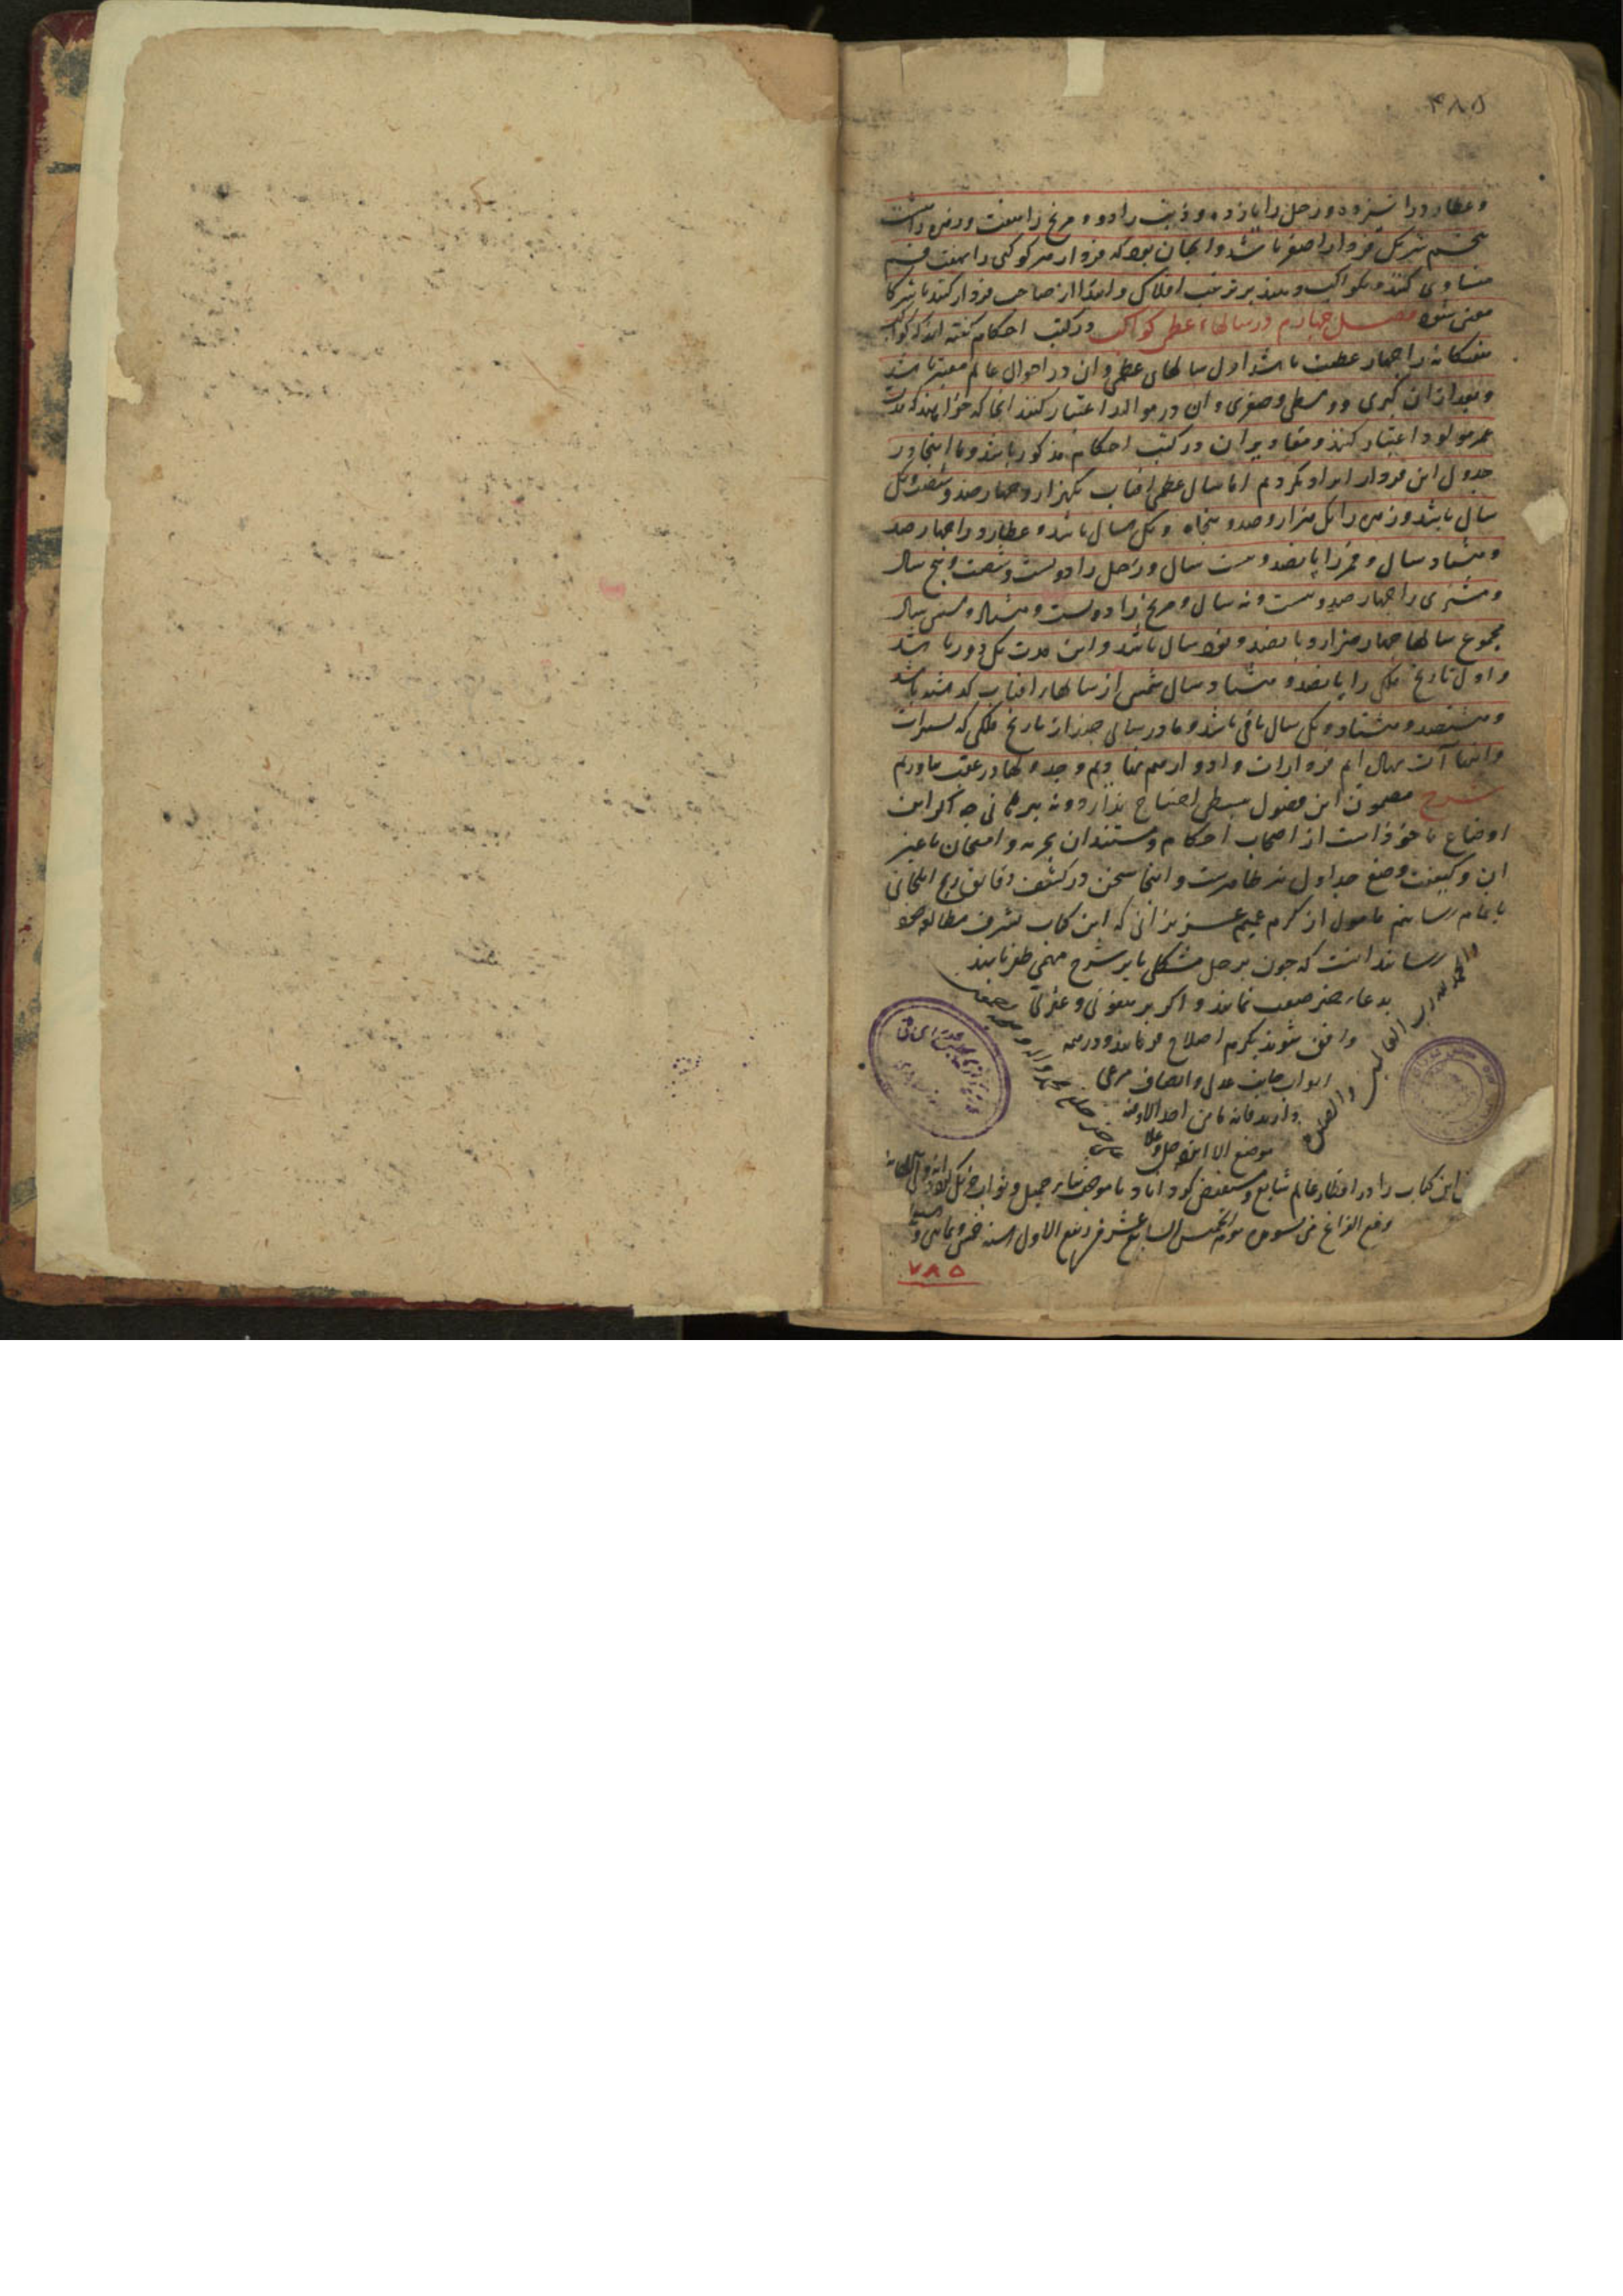 ۴۸۵
و عطارد را سیزده و زحل را یازده و ذنب را دو و مریخ را هفت و زهره را هشت
پنجم شریک فردار اصغر باشد و انچنان بود که فردار هر کوکبی را بهفت قسم
متساوی کنند و بکواکب دهند بر ترتیب افلاک و ابتدا از صاحب فردار کنند تا شرکا
معین شود فصل چهارم در سالهاء اعظم کواکب در کتب احکام گفته اند که کواکب
هفتگانه را چهار عطیت باشد اول سالهای عظمی و ان در احوال عالم معتبر باشد
و بعد از ان کبری و وسطی و صغری و ان در موالید اعتبار کنند انجا که خواهند که مدت
عمر مولود اعتبار کنند و مقادیر ان در کتب احکام مذکور باشد و ما اینجا در
جدول این فردار ایراد کردیم اما سال عظمی افتاب یکهزار و چهارصد و شصت و یک
سال باشد و زهره را یک هزار و صد و پنجاه و یک سال باشد و عطارد را چهار صد
و هشتاد سال و قمر را پانصد و بیست سال و زحل را دویست و شصت و پنج سال
و مشتری را چهار صد و بیست و نه سال و مریخ را دویست و هشتاد و سال
مجموع سالها چهار هزار و پانصد و نود سال باشد و این مدت یک دور باشد
و اول تاریخ ملکی را پانصد و هشتاد سال شمسی از سالهاء افتاب گذشته باشد
و هشتصد و هشتاد و یک سال باقی باشد و ما در سالی چند از تاریخ ملکی که تسییرات
و انتهاآت نهاده ایم فردارات و ادوار هم بنهادیم و جدولها در عقب بیاوردیم
شرح مضمون این فصول ببسطی احتیاج ندارد و نه ببرهانی چه اکثر این
اوضاع ماخوذ است از اصحاب احکام و مستند ان تجربه و امتحان یا غیر
ان و کیفیت وضع جداول نیز ظاهرست و اینجا سخن در کشف دقائق زیج ایلخانی
باتمام رسانیم مامول از کرم عمیم عزیزانی که این کتاب بشرف مطالعه خود
رسانند انست که چون بر حل مشکلی یا بر شرح مبهمی ظفر یابند
بدعاء خیر نمایند و اگر بر هفوتی و عثرتی
واقف شوند بکرم اصلاح فرمایند و در همه
ابواب جانب عدل و انصاف مرعی
دارند فانه ما من احد الا و فیه
موضع الا الله جل و علا
این کتاب را در اقطار عالم شایع و مستفیض گرداناد با موجب ثناء جمیل و ثواب جزیل
وقع الفراغ من تسویده یوم الخمیس السابع عشر من ربیع الاول لسنه خمس و ثمانین و
والحمد لله رب العالمین والصلوة
۷۸۵